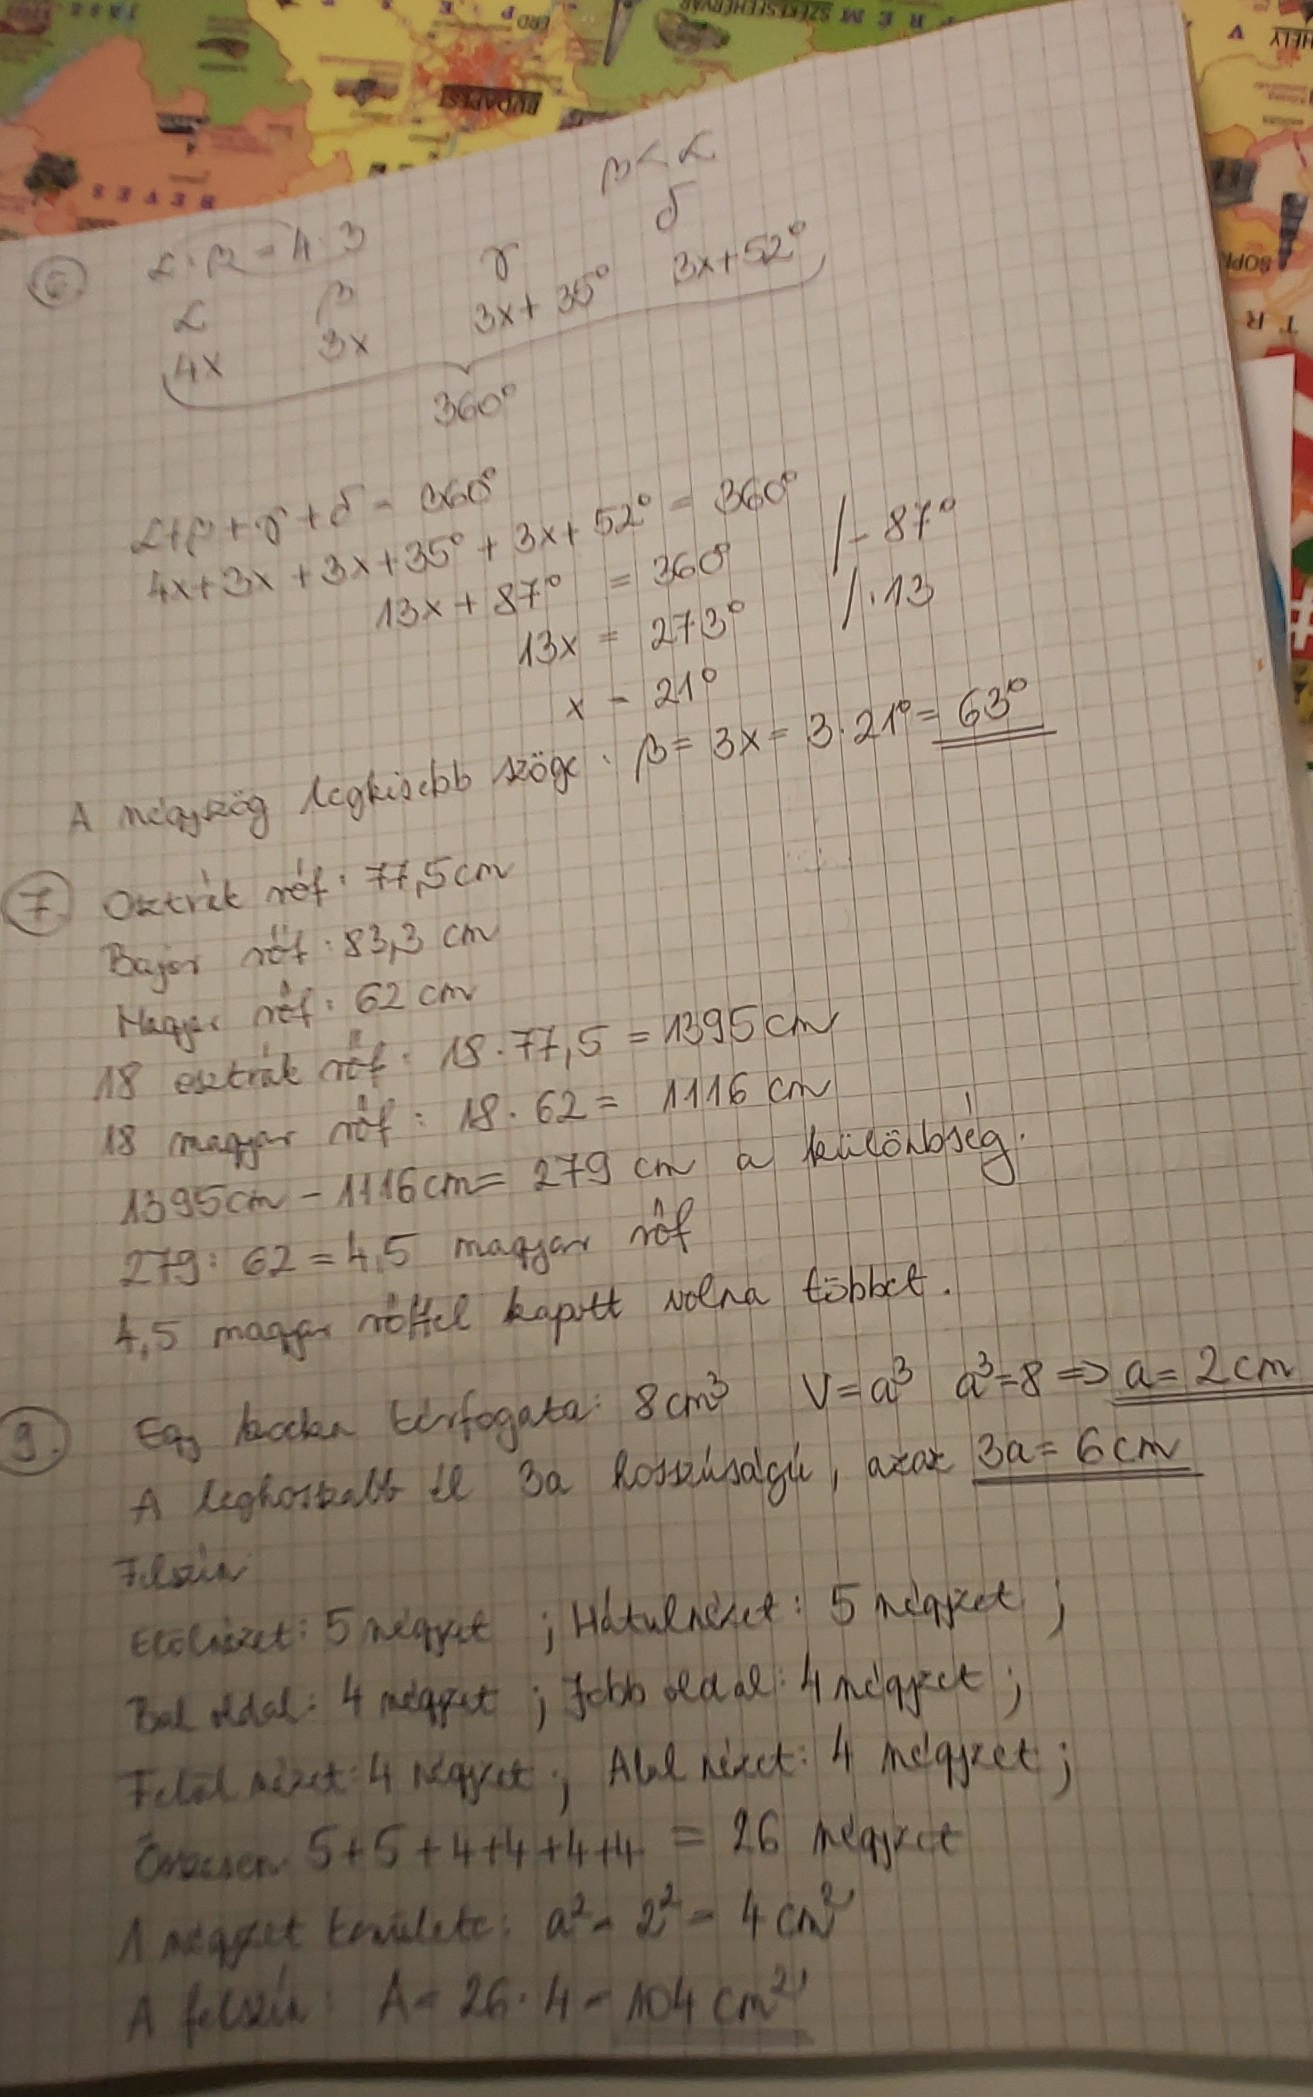 BUDAPEST
ÉRD
SZÉKESFEHÉRVÁR
HEVES
6
α : β = 4 : 3
β < α
α β γ δ
4x 3x 3x + 35° 3x + 52°
360°
α + β + γ + δ = 360°
4x + 3x + 3x + 35° + 3x + 52° = 360°
13x + 87° = 360° /- 87°
13x = 273° /: 13
x = 21°
A négyszög legkisebb szöge: β = 3x = 3 · 21° = 63°
7. Osztrák rőf: 77,5 cm
Bajor rőf: 83,3 cm
Magyar rőf: 62 cm
18 osztrák rőf: 18 · 77,5 = 1395 cm
18 magyar rőf: 18 · 62 = 1116 cm
1395 cm - 1116 cm = 279 cm a különbség.
279 : 62 = 4,5 magyar rőf
4,5 magyar rőffel kapott volna többet.
9. Egy kocka térfogata: 8 cm³ V = a³ a³ = 8 => a = 2 cm
A leghosszabb él 3a hosszúságú, azaz 3a = 6 cm
Felszín
Elölnézet: 5 négyzet ; Hátulnézet: 5 négyzet ;
Bal oldal: 4 négyzet ; Jobb oldal: 4 négyzet ;
Felül nézet: 4 négyzet ; Alul nézet: 4 négyzet ;
Összesen 5 + 5 + 4 + 4 + 4 + 4 = 26 négyzet
1 négyzet területe: a² = 2² = 4 cm²
A felszín: A = 26 · 4 = 104 cm²